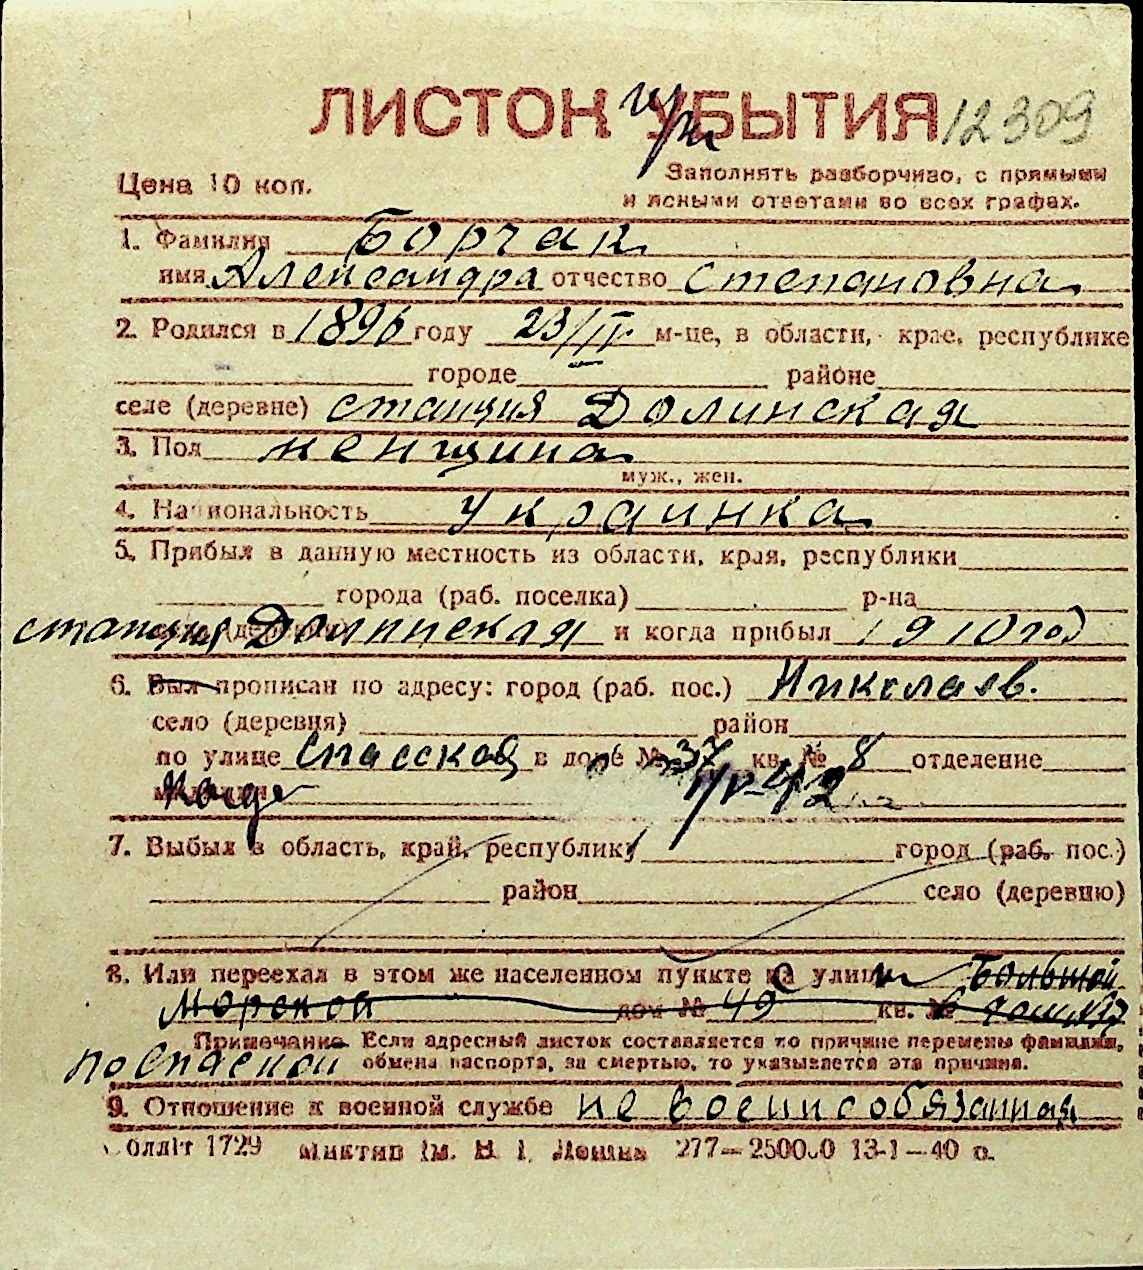 ЛИСТОК УБЫТИЯ 12309
Цена 10 коп.
Заполнять разборчиво, с прямыми
и ясными ответами во всех графах.
1. Фамилия Борчак
имя Александра отчество Степановна
2. Родился в 1896 году 23/IV м-це, в области, крае, республике
городе районе
селе (деревне) станция Долинская
3. Пол женщина
муж., жен.
4. Национальность украинка
5. Прибыл в данную местность из области, края, республики
города (раб. поселка) р-на
станция Долинская и когда прибыл 1910 год
6. Был прописан по адресу: город (раб. пос.) Николаев.
село (деревня) район
по улице Спасской в доме № 37 кв. № 8 отделение
милиции
7. Выбыл в область, край, республику город (раб. пос.)
район село (деревню)
8. Или переехал в этом же населенном пункте на улицу Большой
Морской дом № 49 кв. №
Примечание Если адресный листок составляется по причине перемены фамилии,
по Спаской обмена паспорта, за смертью, то указывается эта причина.
9. Отношение к военной службе не военнообязанная
Облліт 1729 277—250000 13-1—40 р.